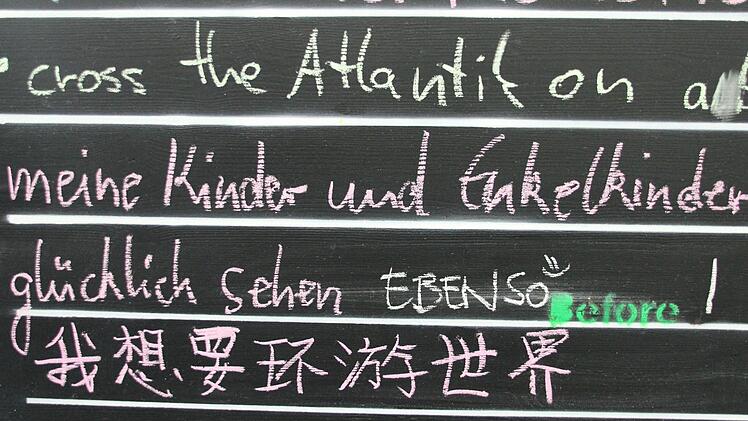 cross the Atlantik on a
meine Kinder und Enkelkinder
glücklich sehen EBENSO
Before I
我想要环游世界